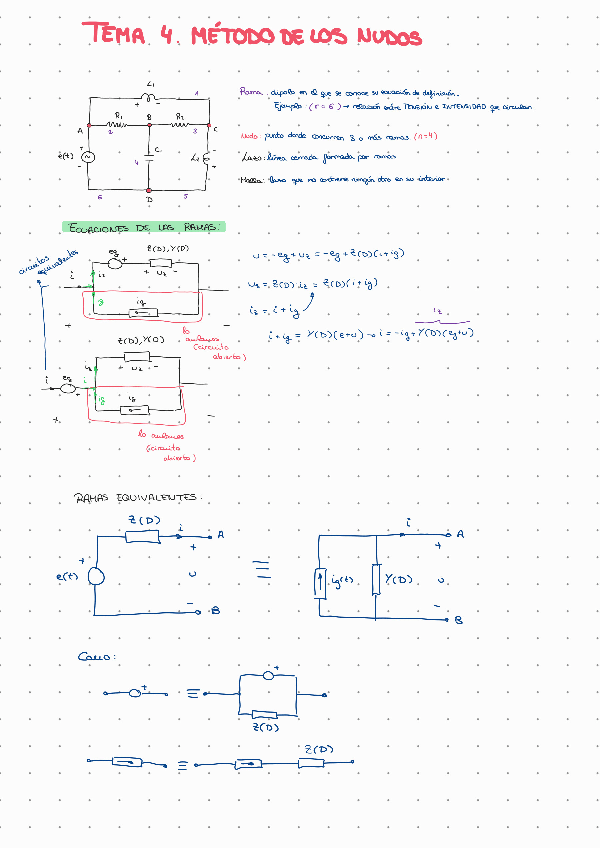 TEMA 4. MÉTODO DE LOS NUDOS
Rama: dipolo en el que se conoce su ecuación de definición.
Ejemplo: (r = 6) → relación entre TENSIÓN e INTENSIDAD que circulan
Nudo: punto donde concurren 3 o más ramas (n=4)
Lazo: línea cerrada formada por ramas
Malla: lazo que no contiene ningún otro en su interior.
L1
1
+ -
R1
R2
A
B
C
2
3
e(t)
+
-
C
4
L2
+
-
6
D
5
ECUACIONES DE LAS RAMAS:
circuitos
equivalentes
eg
Z(D), Y(D)
+
+ uz -
i
iz
ig
ig
+
-
lo
anulamos
(circuito
abierto)
u = -eg + uz = -eg + Z(D)(i+ig)
uz = Z(D) iz = Z(D)(i+ig)
iz = i + ig
iz
i + ig = Y(D)(e+u) → i = -ig + Y(D)(eg+u)
Z(D), Y(D)
+ uz -
i
eg
+
i
ig
ig
+
-
lo anulamos
(circuito
abierto)
RAMAS EQUIVALENTES.
Z(D)
i
A
+
e(t)
+
u
-
B
≡
i
A
+
ig(t)
Y(D)
u
-
B
+
≡
+
Z(D)
≡
Z(D)